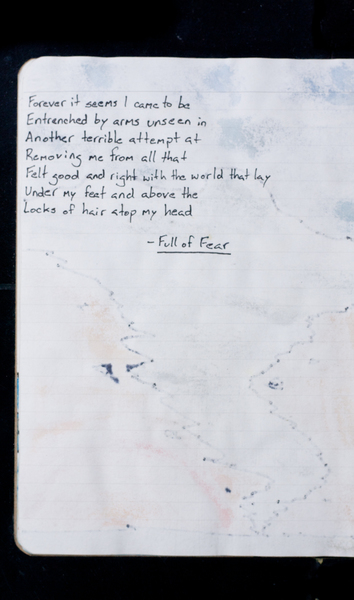 Forever it seems I came to be
Entrenched by arms unseen in
Another terrible attempt at
Removing me from all that
Felt good and right with the world that lay
Under my feet and above the
Locks of hair atop my head
- Full of Fear